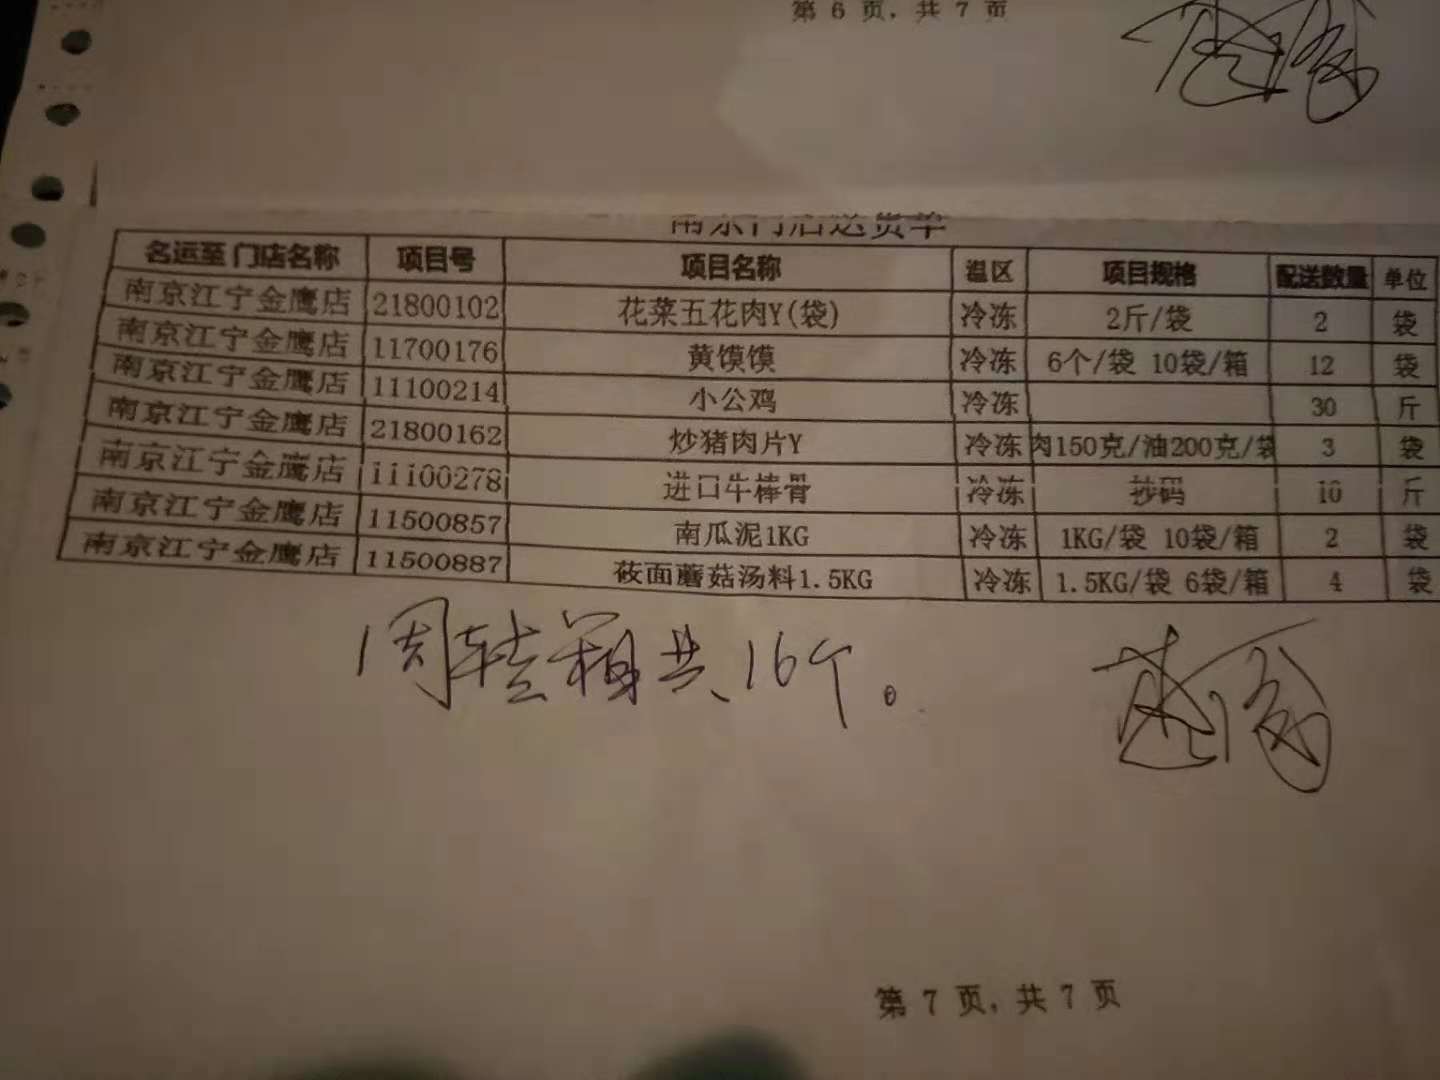 第 6 页，共 7 页
南京门店送货单
名运至 门店名称 项目号 项目名称 温区 项目规格 配送数量 单位
南京江宁金鹰店 21800102 花菜五花肉Y(袋) 冷冻 2斤/袋 2 袋
南京江宁金鹰店 11700176 黄馍馍 冷冻 6个/袋 10袋/箱 12 袋
南京江宁金鹰店 11100214 小公鸡 冷冻 30 斤
南京江宁金鹰店 21800162 炒猪肉片Y 冷冻 肉150克/油200克/袋 3 袋
南京江宁金鹰店 11100278 进口牛棒骨 冷冻 抄码 10 斤
南京江宁金鹰店 11500857 南瓜泥1KG 冷冻 1KG/袋 10袋/箱 2 袋
南京江宁金鹰店 11500887 莜面蘑菇汤料1.5KG 冷冻 1.5KG/袋 6袋/箱 4 袋
周转箱共16个。
第 7 页，共 7 页